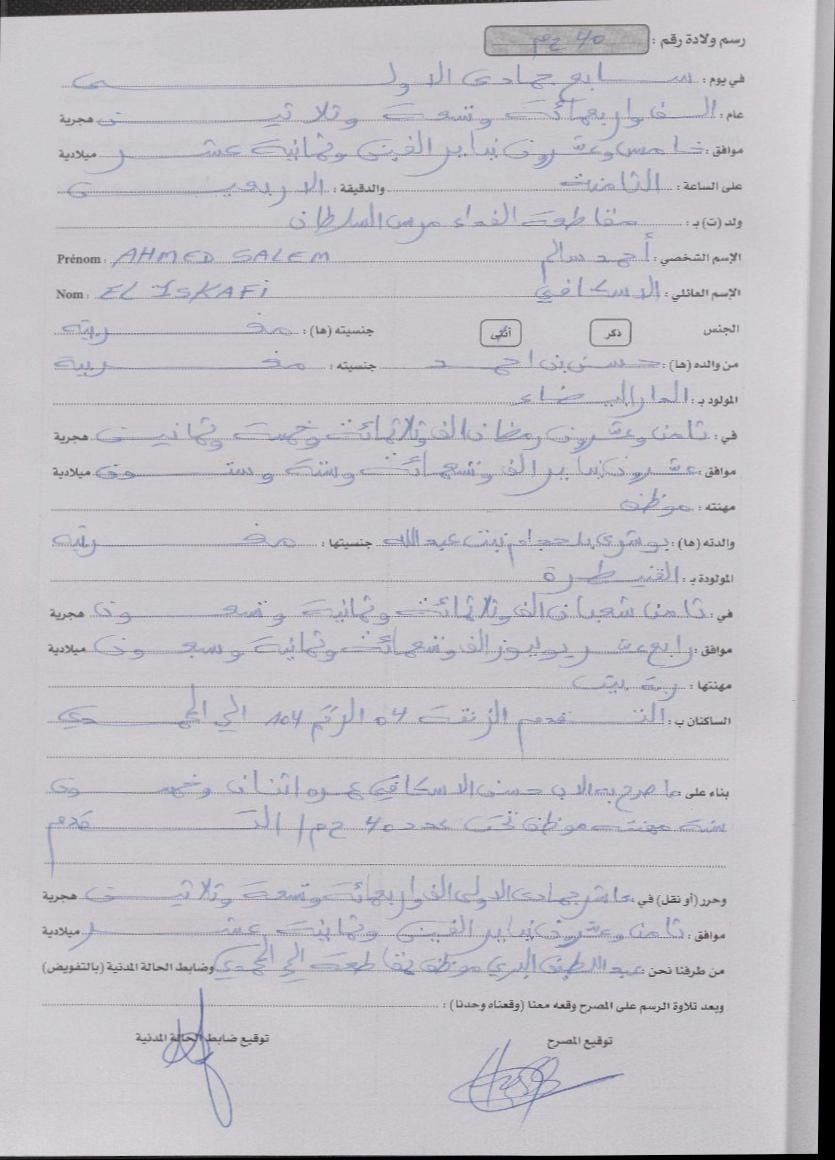 رسم ولادة رقم : 40 ح م
في يوم : سابع جمادى الاولى
عام : الف واربعمائة وتسعة وثلاثين هجرية
موافق : خامس وعشرون يناير الفين وثمانية عشر ميلادية
على الساعة : الثامنة والدقيقة : الاربعين
ولد (ت) بـ : مقاطعة الفداء مرس السلطان
الإسم الشخصي : أحمد سالم Prénom : AHMED SALEM
الإسم العائلي : الاسكافي Nom : EL ISKAFi
الجنس ذكر أنثى جنسيته (ها) : مغربية
من والده (ها) : حسن بن احمد جنسيته : مغربية
المولود بـ : الدار البيضاء
في : ثامن وعشرون رمضان الف وثلاثمائة وخمسة وثمانين هجرية
موافق : عشرون يناير الف وتسعمائة وستة وستون ميلادية
مهنته : موظف
والدته (ها) : بوشرى بلحجام بنت عبد الله جنسيتها : مغربية
المولودة بـ : القنيطرة
في : ثامن شعبان الف وثلاثمائة وثمانية وتسعون هجرية
موافق : رابع عشر يوليوز الف وتسعمائة وثمانية وسبعون ميلادية
مهنتها : ربة بيت
الساكنان ب : التقدم الزنقة 54 الرقم 104 الحي المحمدي
بناء على : ما صرح به الاب حسن الاسكافي عمره اثنان وخمسون
سنة مهنته موظف تحت عدد 40 ح م / التقدم
وحرر (أو نقل) في : عاشر جمادى الاولى الف واربعمائة وتسعة وثلاثين هجرية
موافق : ثامن وعشرون يناير الفين وثمانية عشر ميلادية
من طرفنا نحن : عبد اللطيف البدري موظف بمقاطعة الحي المحمدي وضابط الحالة المدنية (بالتفويض)
وبعد تلاوة الرسم على المصرح وقعه معنا (وقعناه وحدنا) :
توقيع المصرح توقيع ضابط الحالة المدنية